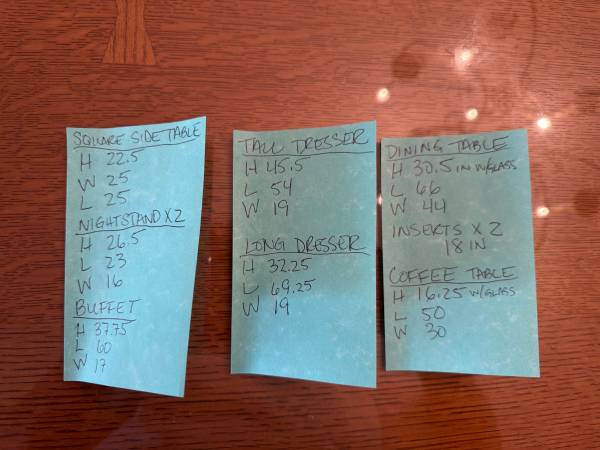 SQUARE SIDE TABLE
H 22.5
W 25
L 25
NIGHTSTAND X 2
H 26.5
L 23
W 16
BUFFET
H 37.75
L 60
W 17
TALL DRESSER
H 45.5
L 54
W 19
LONG DRESSER
H 32.25
L 69.25
W 19
DINING TABLE
H 30.5 IN W/GLASS
L 66
W 44
INSERTS X 2
18 IN
COFFEE TABLE
H 16.25 W/GLASS
L 50
W 30